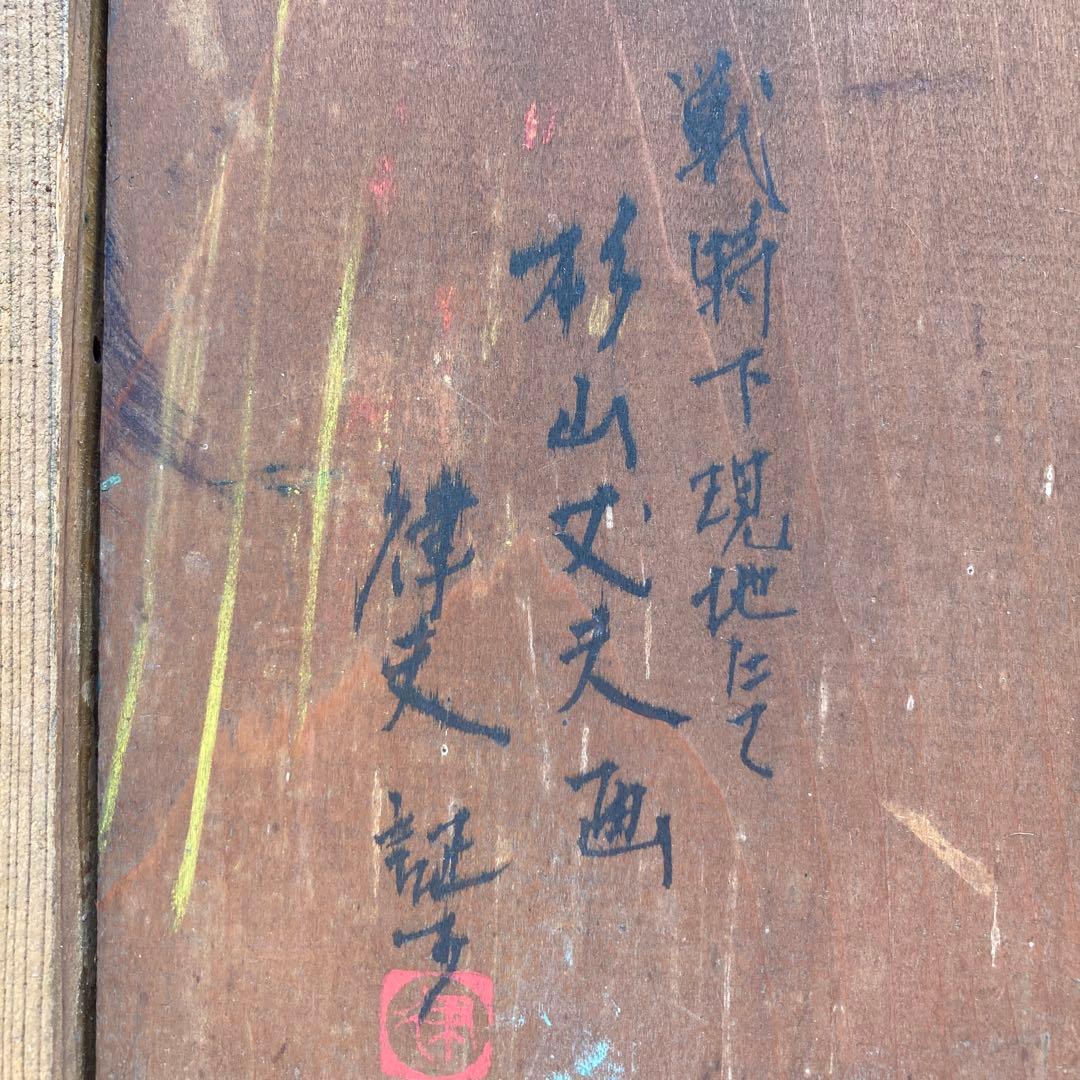 戦時下現地にて
杉山丈夫画
律夫証す